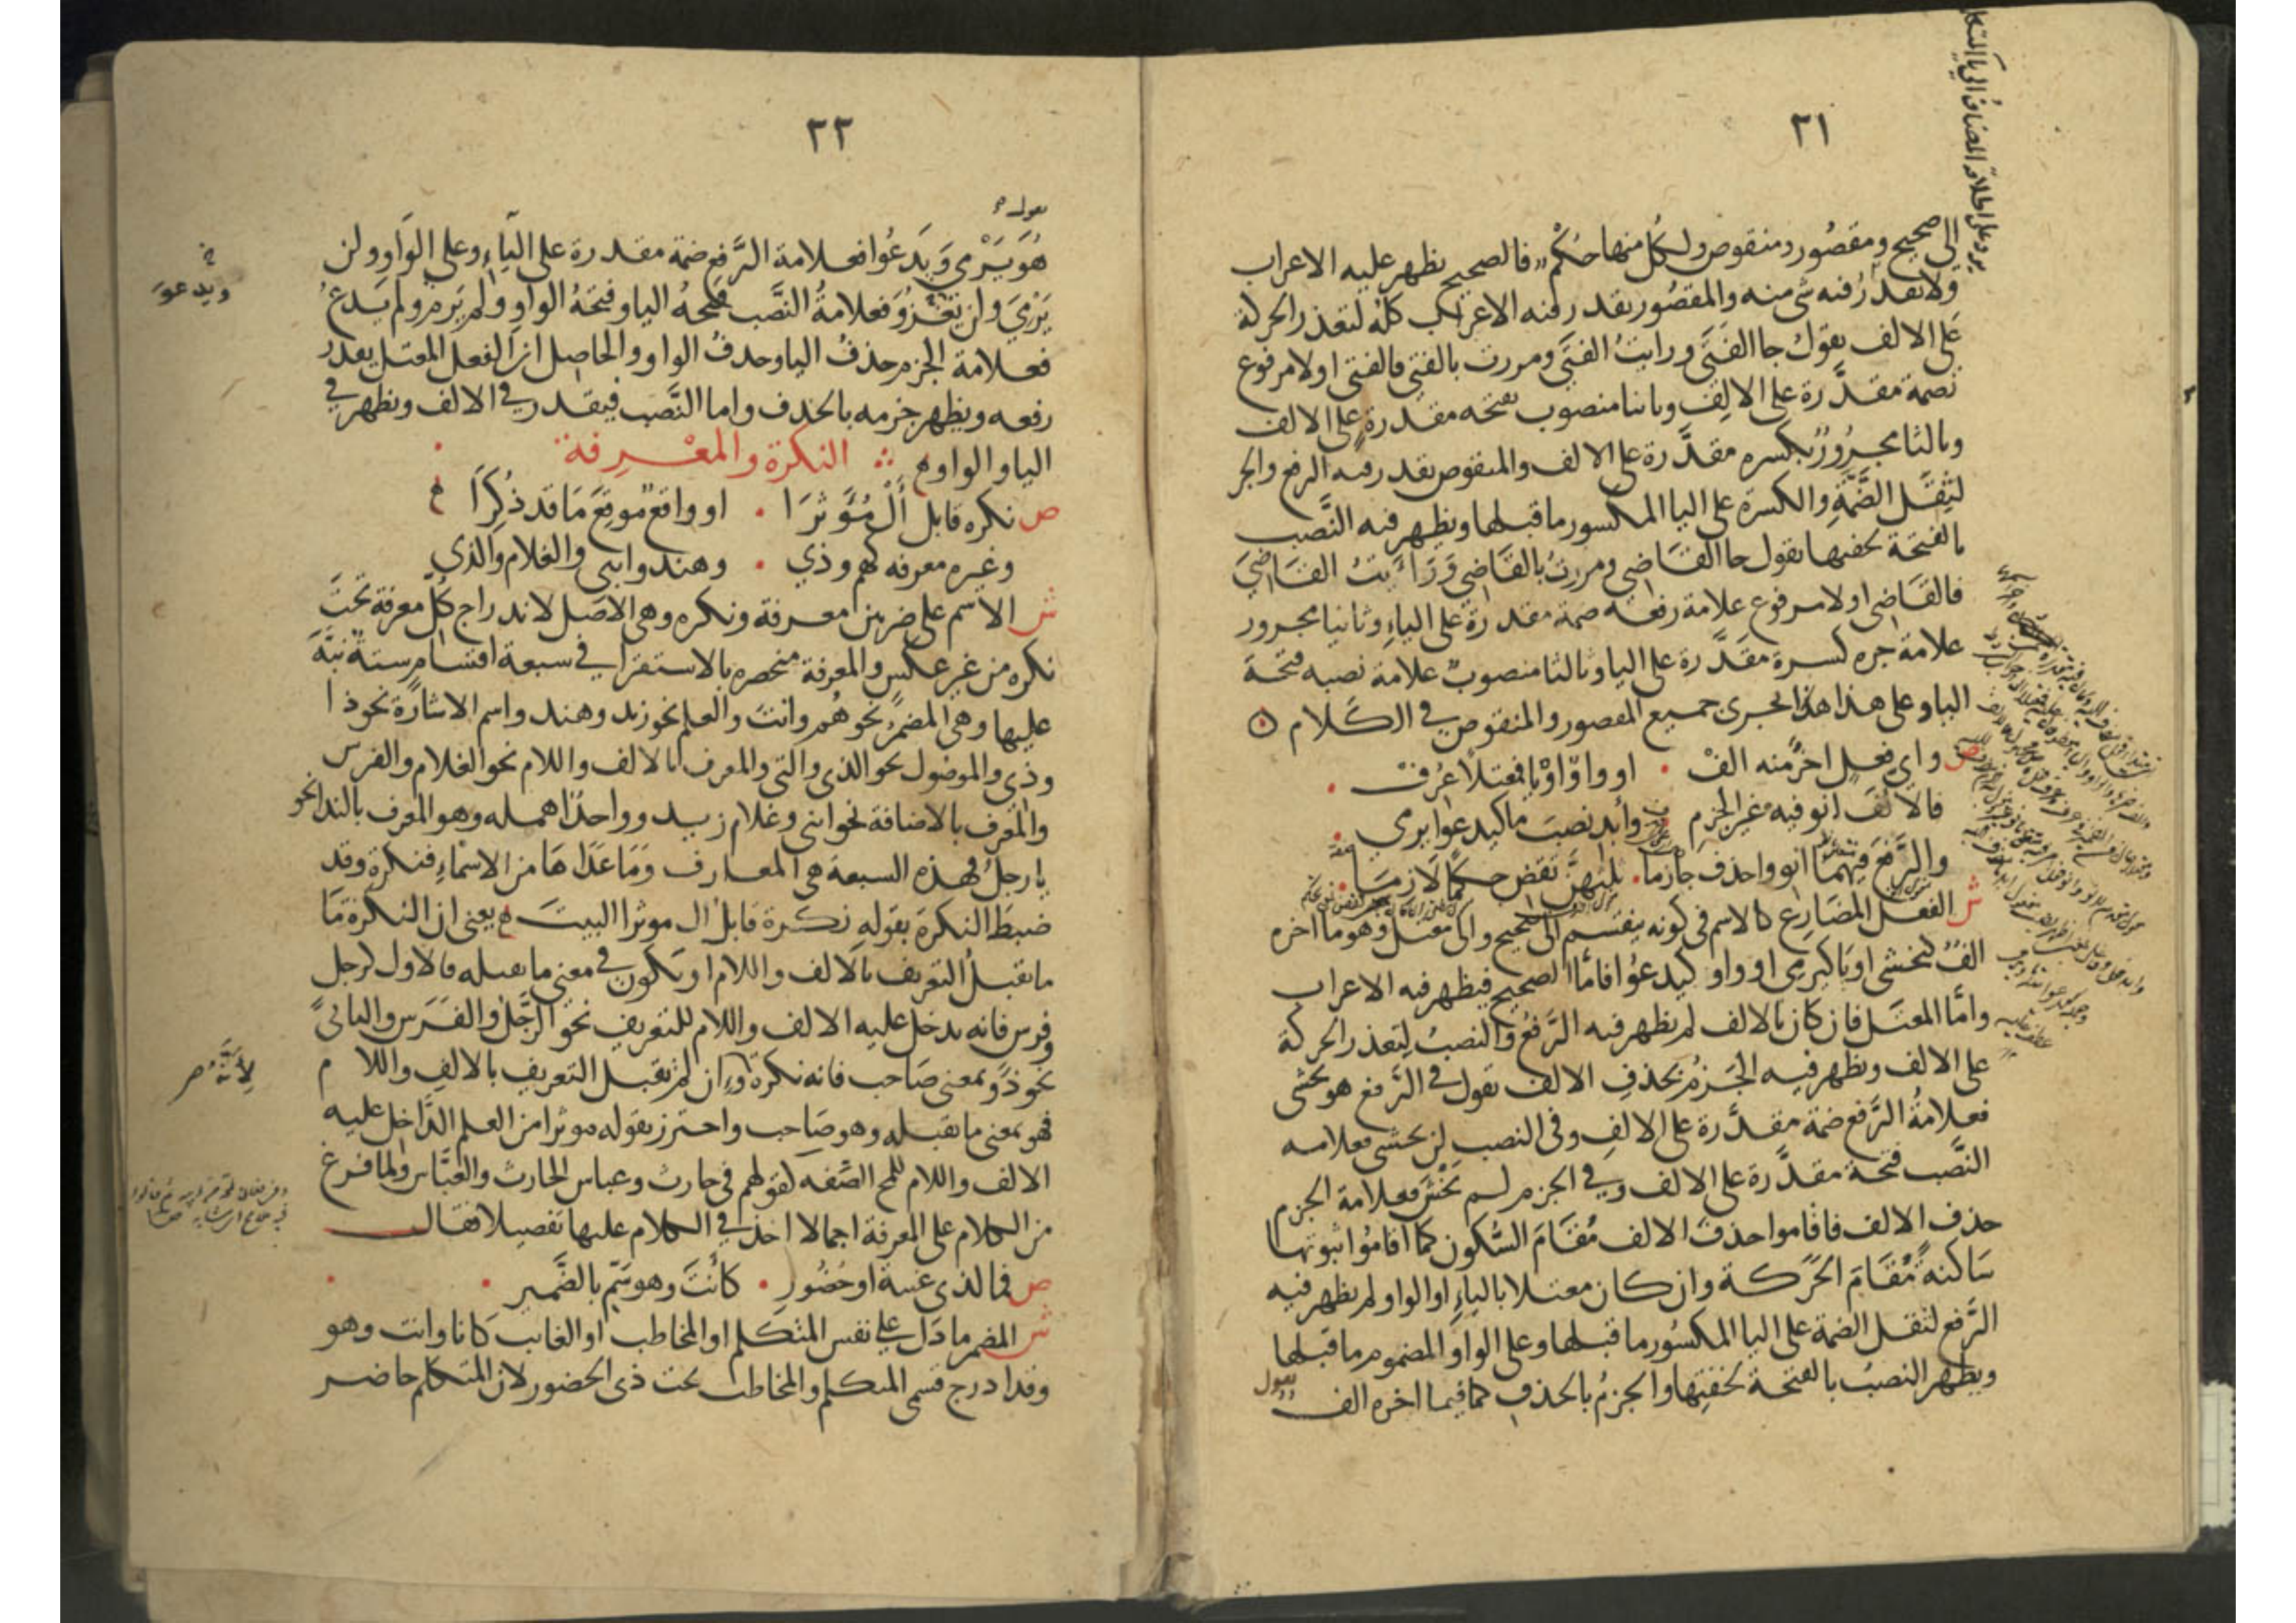 ٢١
الى صحيح ومقصور ومنقوص ولكل منها حكم فالصحيح يظهر عليه الاعراب
ولا يقدر فيه شي منه والمقصور يقدر فيه الاعراب كله لتعذر الحركة
على الالف تقول جا الفتى ورايت الفتى ومررت بالفتى فالفتى اولا مرفوع
بضمة مقدرة على الالف وثانيا منصوب بفتحه مقدرة على الالف
وثالثا مجرور بكسره مقدرة على الالف والمنقوص يقدر فيه الرفع والجر
لثقل الضمة والكسرة على اليا المكسور ما قبلها ويظهر فيه النصب
بالفتحة لخفتها تقول جا القاضي ومررت بالقاضي ورأيت القاضي
فالقاضي اولا مرفوع علامة رفعه ضمة مقدرة على الياء وثانيا مجرور
علامة جره كسرة مقدرة على اليا وثالثا منصوب علامة نصبه فتحة
اليا وعلى هذا هذا الحرى جميع المقصور والمنقوص في الكلام
ص واي فعل اخر منه الف . او واو او يا فمعتلا عرف .
فالالف انو فيه غير الجزم . وأبد نصب ما كيدعوا يرمي .
والرفع فيهما انو واحذف جازما . ثلثهن تقض حكما لازما .
ش الفعل المضارع كالاسم في كونه ينقسم الى صحيح والى معتل وهو ما اخره
الف كيخشى او يا كيرمي او واو كيدعوا فأما الصحيح فيظهر فيه الاعراب
وأما المعتل فان كان بالالف لم يظهر فيه الرفع والنصب لتعذر الحركة
على الالف ويظهر فيه الجزم بحذف الالف تقول في الرفع هو يخشى
فعلامة الرفع ضمة مقدرة على الالف وفى النصب لن يخشى فعلامه
النصب فتحة مقدرة على الالف وفي الجزم لم يخش فعلامة الجزم
حذف الالف فاقاموا حذف الالف مقام السكون كما اقاموا ثبوتها
ساكنة مقام الحركة وان كان معتلا بالياء او الواو لم يظهر فيه
الرفع لثقل الضمة على اليا المكسور ما قبلها وعلى الواو المضموم ما قبلها
ويظهر النصب بالفتحة لخفتها والجزم بالحذف كما فيما اخره الف
تقول
يرد على اطلاقه المضاف الى يا المتكلم
٢٢
تقول
هو يرمي ويدعوا فعلامة الرفع ضمة مقدرة على الياء وعلى الواو ولن
يرمي وان يغزو فعلامة النصب فتحة اليا وفتحة الواو ولم يرم ولم يدع
فعلامة الجزم حذف اليا وحذف الواو والحاصل ان الفعل المعتل يقدر
رفعه ويظهر جزمه بالحذف واما النصب فيقدر في الالف ويظهر في
اليا والواو النكرة والمعرفة
ص نكره قابل أل مؤثرا . او واقع موقع ما قد ذكرا
وغيره معرفه كهم وذي . وهند وابني والغلام والذي
ش الاسم على ضربين معرفة ونكره وهي الاصل لاندراج كل معرفة تحت
نكره من غير عكس والمعرفة منحصره بالاستقرا في سبعة اقسام ستة نبه
عليها وهي المضمر نحو هم وانت والعلم نحو زيد وهند واسم الاشارة نحو ذا
وذي والموصول نحو الذي والتي والمعرف بالالف واللام نحو الغلام والفرس
والمعرف بالاضافة نحو ابني وغلام زيد وواحدا اهمله وهو المعرف بالندا نحو
يا رجل فهذه السبعة هي المعارف وما عداها من الاسماء فنكرة وقد
ضبط النكرة بقوله نكرة قابل ال موثرا البيت يعني ان النكرة ما
ما تقبل التعريف بالالف واللام او يكون في معنى ما يقبله فالاول كرجل
وفرس فانه يدخل عليه الالف واللام للتعريف نحو الرجل والفرس والثاني
نحو ذو بمعنى صاحب فانه نكرة وان لم يقبل التعريف بالالف واللام
فهو بمعنى ما يقبله وهو صاحب واحترز بقوله موثرا من العلم الداخل عليه
الالف واللام للمح الصفه لقولهم في حارث وعباس الحارث والعباس ولما فرغ
من الكلام على المعرفة اجمالا اخذ في الكلام عليها تفصيلا فقال
ص فما لذي غيبة او حضور . كأنت وهو سم بالضمير .
ش المضمر ما دل على نفس المتكلم او المخاطب او الغايب كانا وانت وهو
وقد ادرج قسمي المتكلم والمخاطب تحت ذي الحضور لان المتكلم حاضر
ويدعو